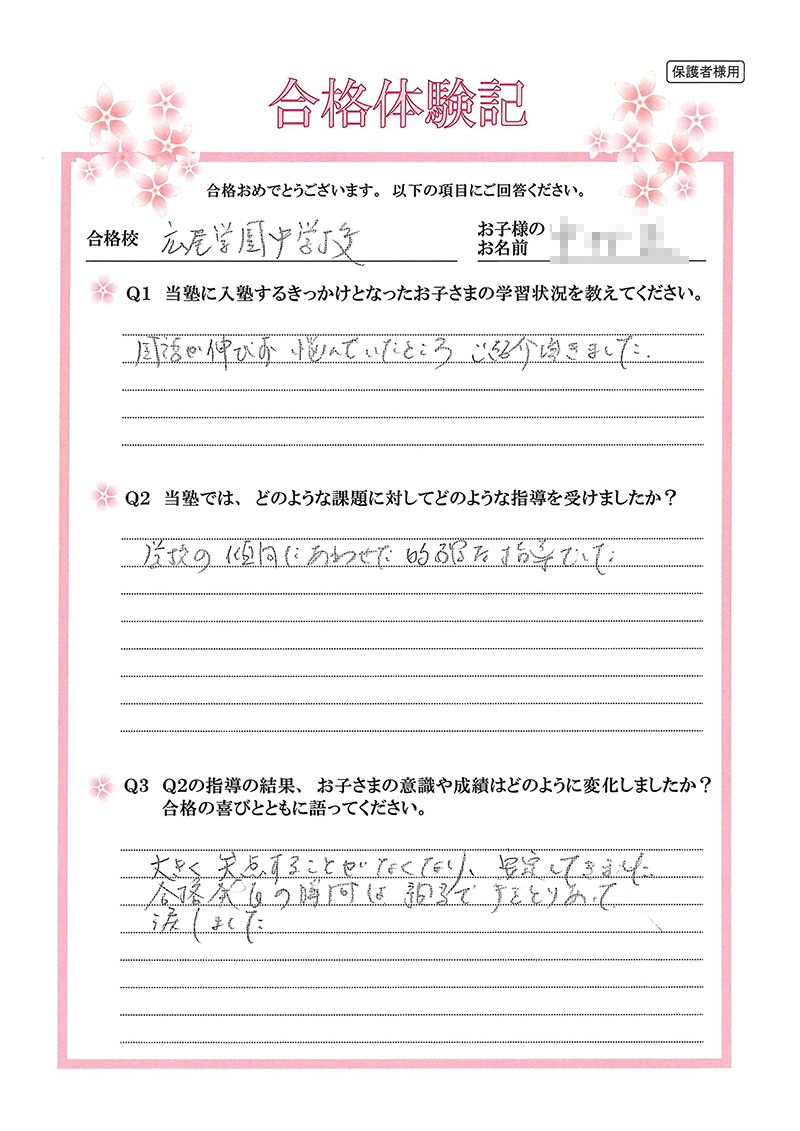 保護者様用
合格体験記
合格おめでとうございます。 以下の項目にご回答ください。
合格校 広尾学園中学校
お子様の
お名前
Q1 当塾に入塾するきっかけとなったお子さまの学習状況を教えてください。
国語が伸びず 悩んでいたところ ご紹介頂きました.
Q2 当塾では、 どのような課題に対してどのような指導を受けましたか?
学校の 傾向にあわせた 的確な 指導でした
Q3 Q2の指導の結果、 お子さまの意識や成績はどのように変化しましたか?
合格の喜びとともに語ってください。
大きく 失点することがなくなり、安定してきました
合格発 の瞬間は 親子で 手をとりあって
涙しました